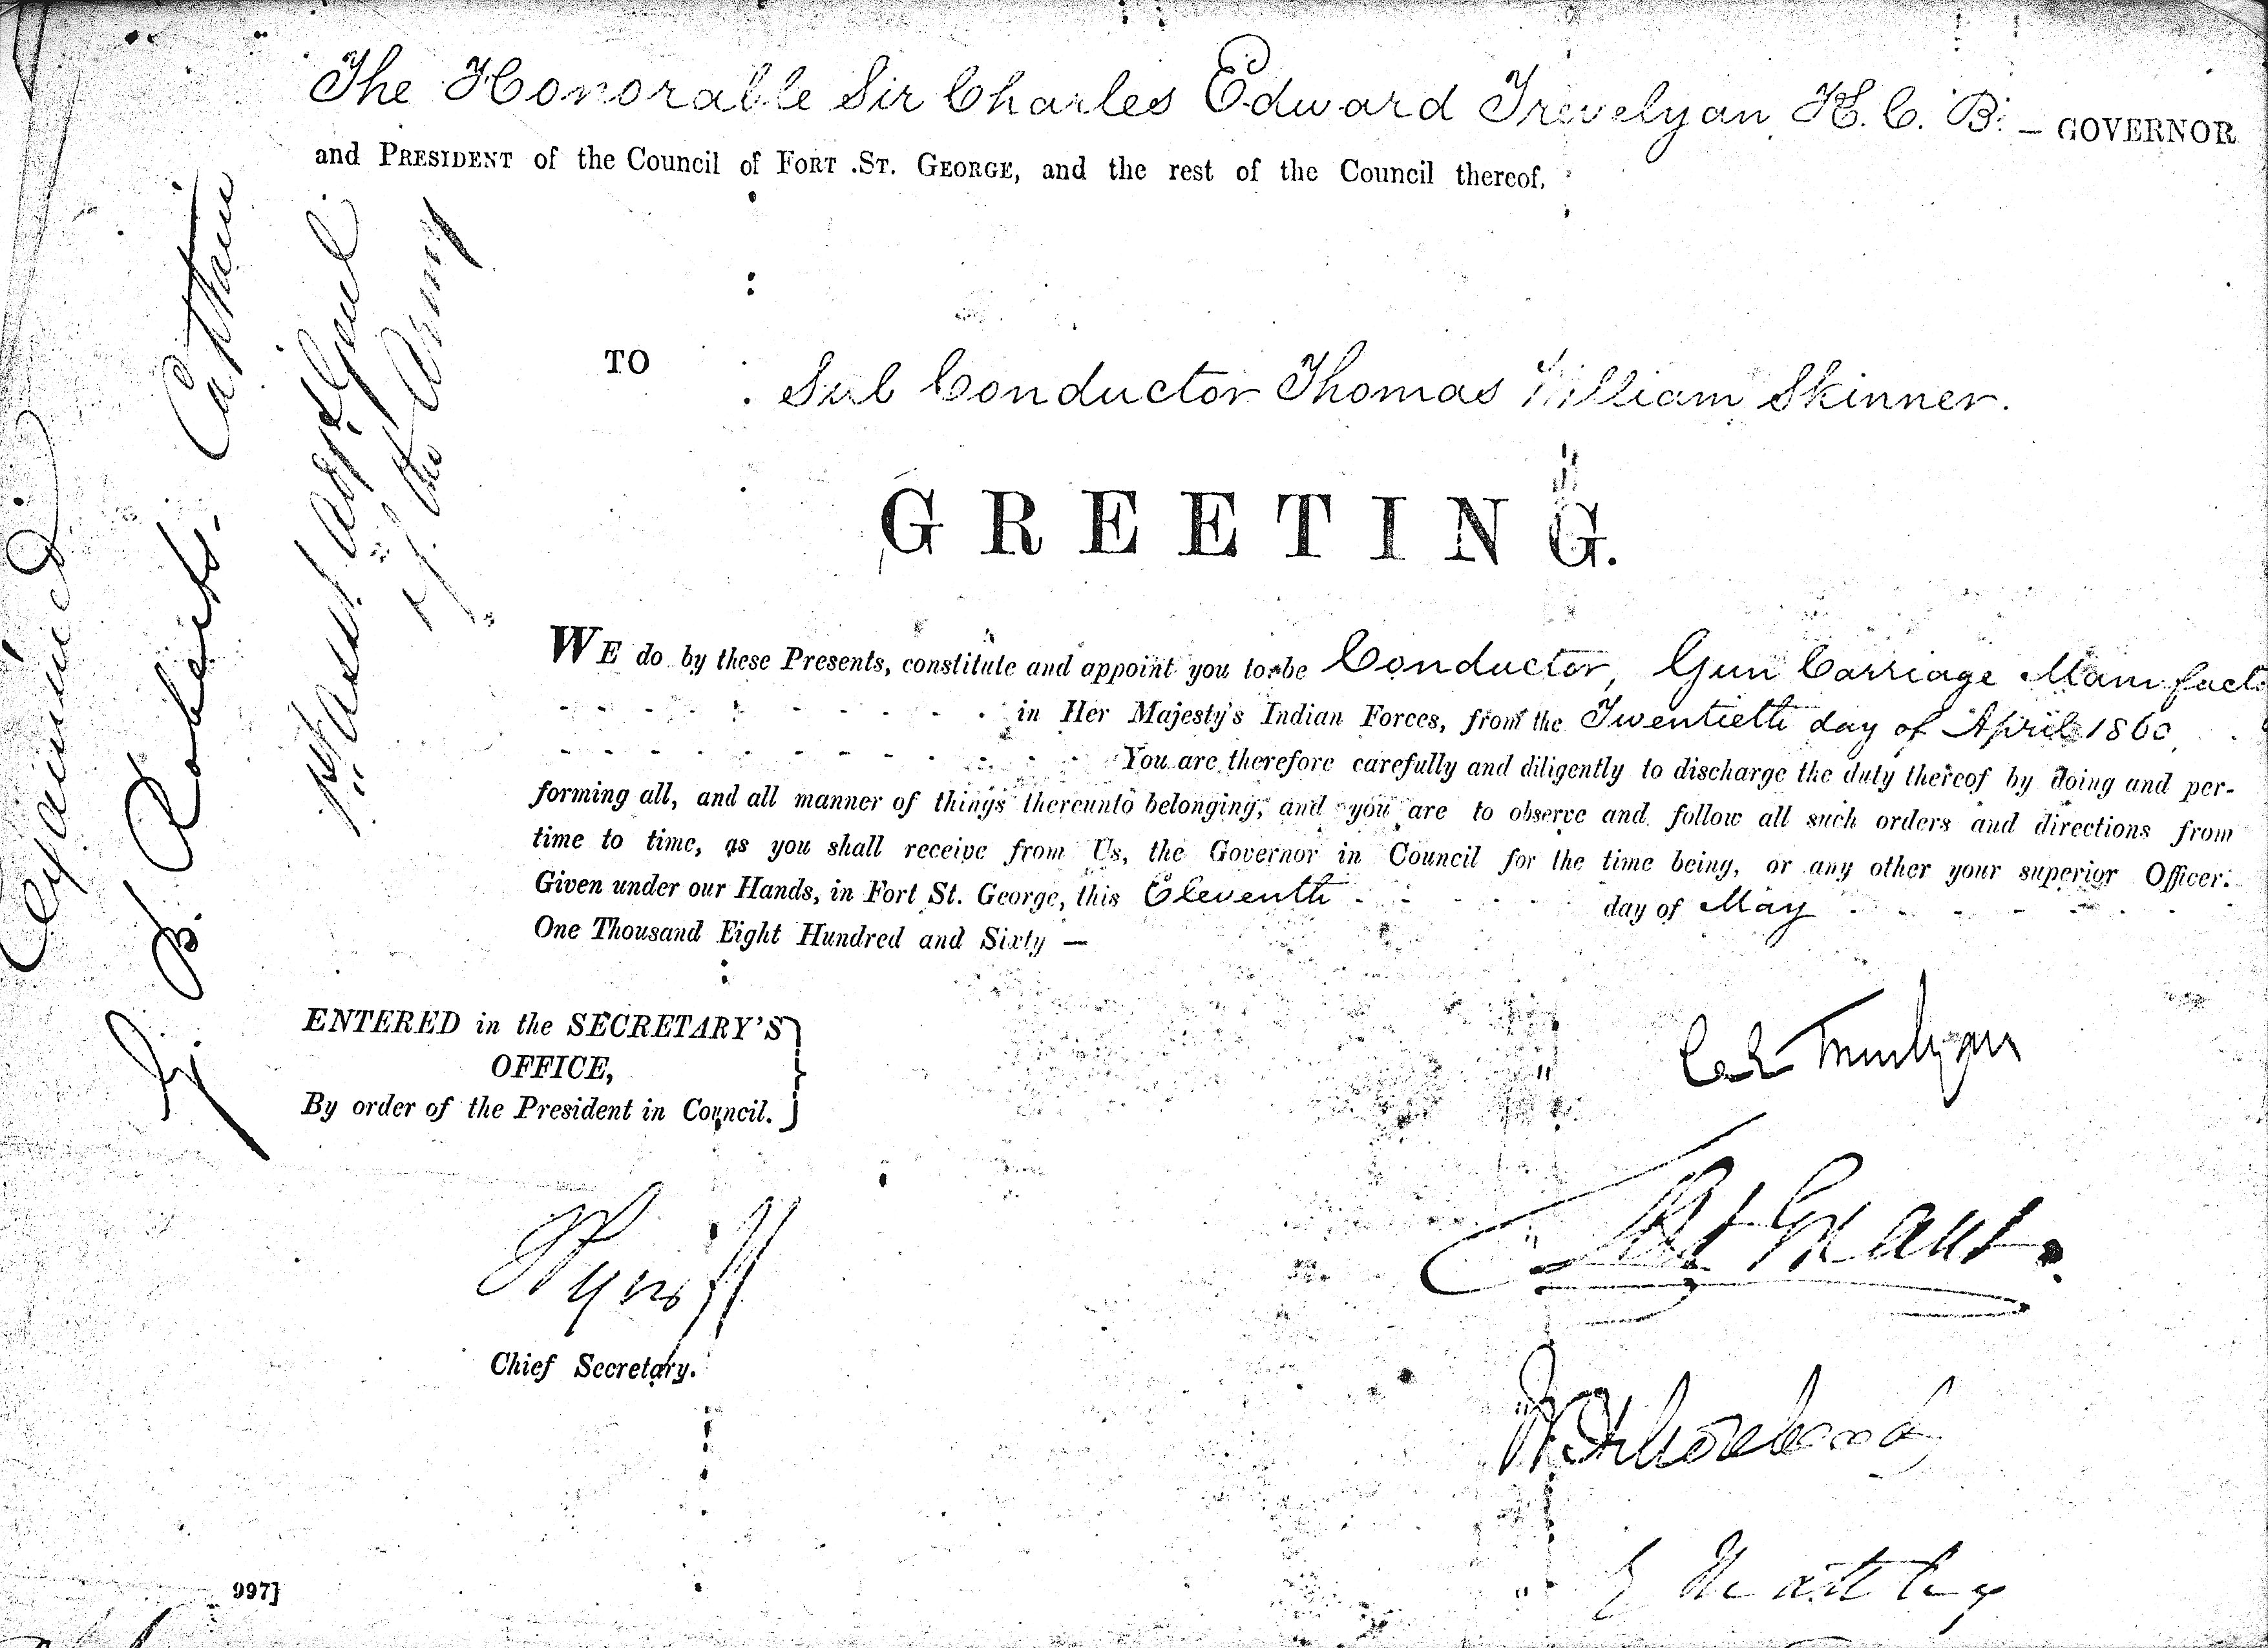 The Honorable Sir Charles Edward Trevelyan, K. C. B. — GOVERNOR
and PRESIDENT of the Council of FORT ST. GEORGE, and the rest of the Council thereof,
TO
Sub Conductor Thomas William Skinner.
GREETING.
WE do by these Presents, constitute and appoint you to be Conductor, Gun Carriage Manufact
in Her Majesty's Indian Forces, from the Twentieth day of April 1860
You are therefore carefully and diligently to discharge the duty thereof by doing and per-
forming all, and all manner of things thereunto belonging, and you are to observe and follow all such orders and directions from
time to time, as you shall receive from Us, the Governor in Council for the time being, or any other your superior Officer.
Given under our Hands, in Fort St. George, this Eleventh day of May
One Thousand Eight Hundred and Sixty —
ENTERED in the SECRETARY'S
OFFICE,
By order of the President in Council.
Chief Secretary.
997]
Examined
Roberts. Captain
1st Assist Adjt. Genl.
of the Army
Trevelyan
Grant.
Maltby